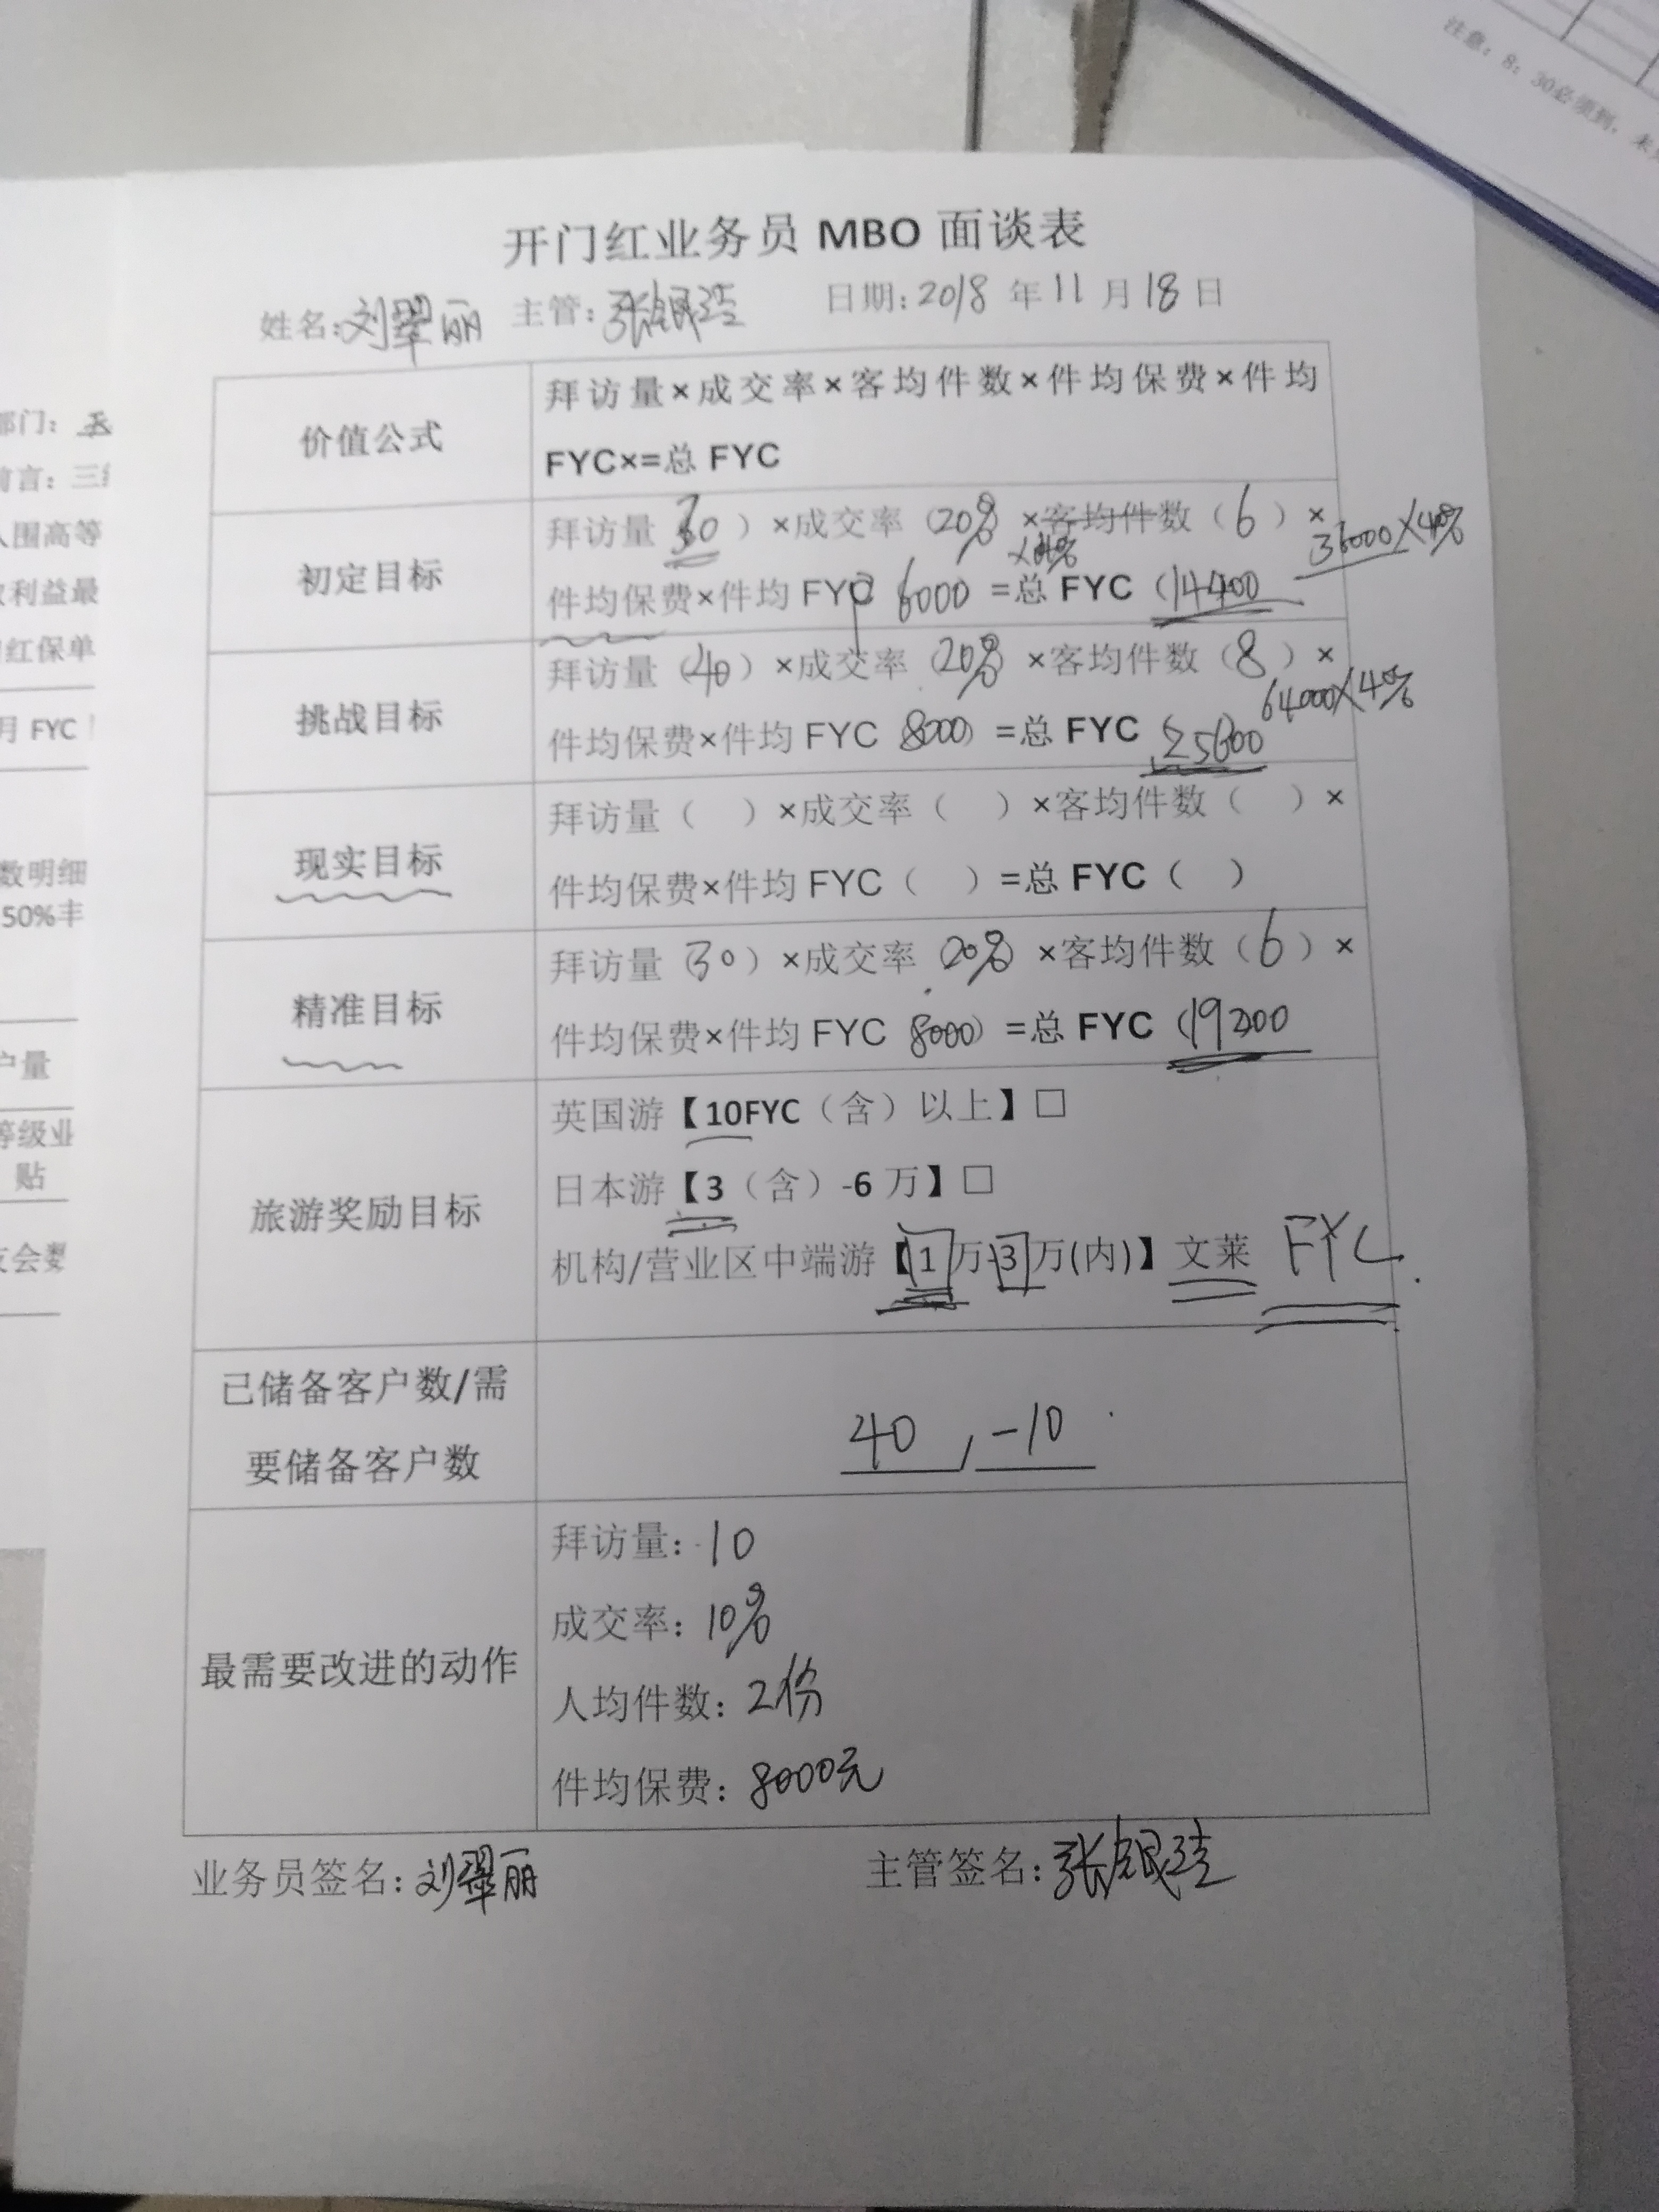 注意：8：30必须到，未
开门红业务员 MBO 面谈表
姓名:刘翠丽 主管:张银 日期:2018 年 11 月 18 日
价值公式
拜访量×成交率×客均件数×件均保费×件均
FYC×=总 FYC
初定目标
拜访量 30 ）×成交率（20%）×客均件数（6）×
36000×40%
×40%
件均保费×件均 FYC 6000 =总 FYC（14400
挑战目标
拜访量（40）×成交率（20%）×客均件数（8）×
64000×40%
件均保费×件均 FYC 8000）=总 FYC 25600
现实目标
拜访量（ ）×成交率（ ）×客均件数（ ）×
件均保费×件均 FYC（ ）=总 FYC（ ）
精准目标
拜访量（30）×成交率（20%）×客均件数（6）×
件均保费×件均 FYC 8000）=总 FYC（19200
旅游奖励目标
英国游【10FYC（含）以上】□
日本游【3（含）-6 万】□
机构/营业区中端游【1万-3万(内)】文莱 FYC.
已储备客户数/需
要储备客户数
40 , -10
最需要改进的动作
拜访量: 10
成交率: 10%
人均件数: 2份
件均保费: 8000元
业务员签名: 刘翠丽 主管签名: 张银
部门：
前言：三
入围高等
利益最
红保单
月 FYC
数明细
50%丰
户量
等级业
贴
会